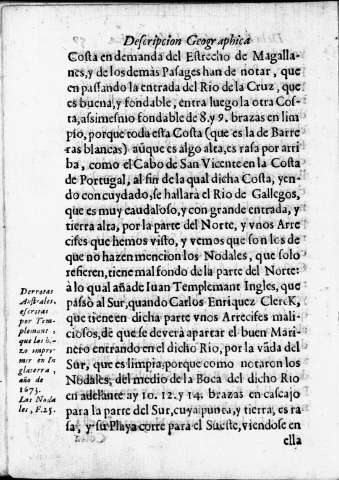 Descripcion Geographica
Costa en demanda del Estrecho de Magalla-
nes, y de los demàs Pasages han de notar, que
en passando la entrada del Rio de la Cruz, que
es buena, y fondable, entra luego la otra Cos-
ta, assimesmo fondable de 8. y 9. brazas en lim
pio, porque toda esta Costa (que es la de Barre
ras blancas) aũque es algo alta, es rasa por arri
ba, como el Cabo de San Vicente en la Costa
de Portugal, al fin de la qual dicha Costa, yen-
do con cuydado, se hallarà el Rio de Gallegos,
que es muy caudaloso, y con grande entrada, y
tierra alta, por la parte del Norte, y vnos Arre
cifes que hemos visto, y vemos que son los de
que no hazen mencion los Nodales, que solo
refieren, tiene mal fondo de la parte del Norte:
à lo qual añade Iuan Templemant Ingles, que
passò al Sur, quando Carlos Enriquez Clerck,
que tiene en dicha parte vnos Arrecifes mali-
ciosos, de que se deverà apartar el buen Mari-
nero entrando en el dicho Rio, por la vãda del
Sur, que es limpia: porque como notaron los
Nodales, del medio de la Boca del dicho Rio
en adelante ay 10. 12. y 14. brazas en cascajo
para la parte del Sur, cuya punta, y tierra, es ra
sa, y su Playa corre para el Sueste, viendose en
ella
Derrotas
Australes,
escritas
por Tem-
plemant,
que las hi-
zo impri-
mir en In
glaterra,
año de
1673.
Los Noda
les, F. 25.